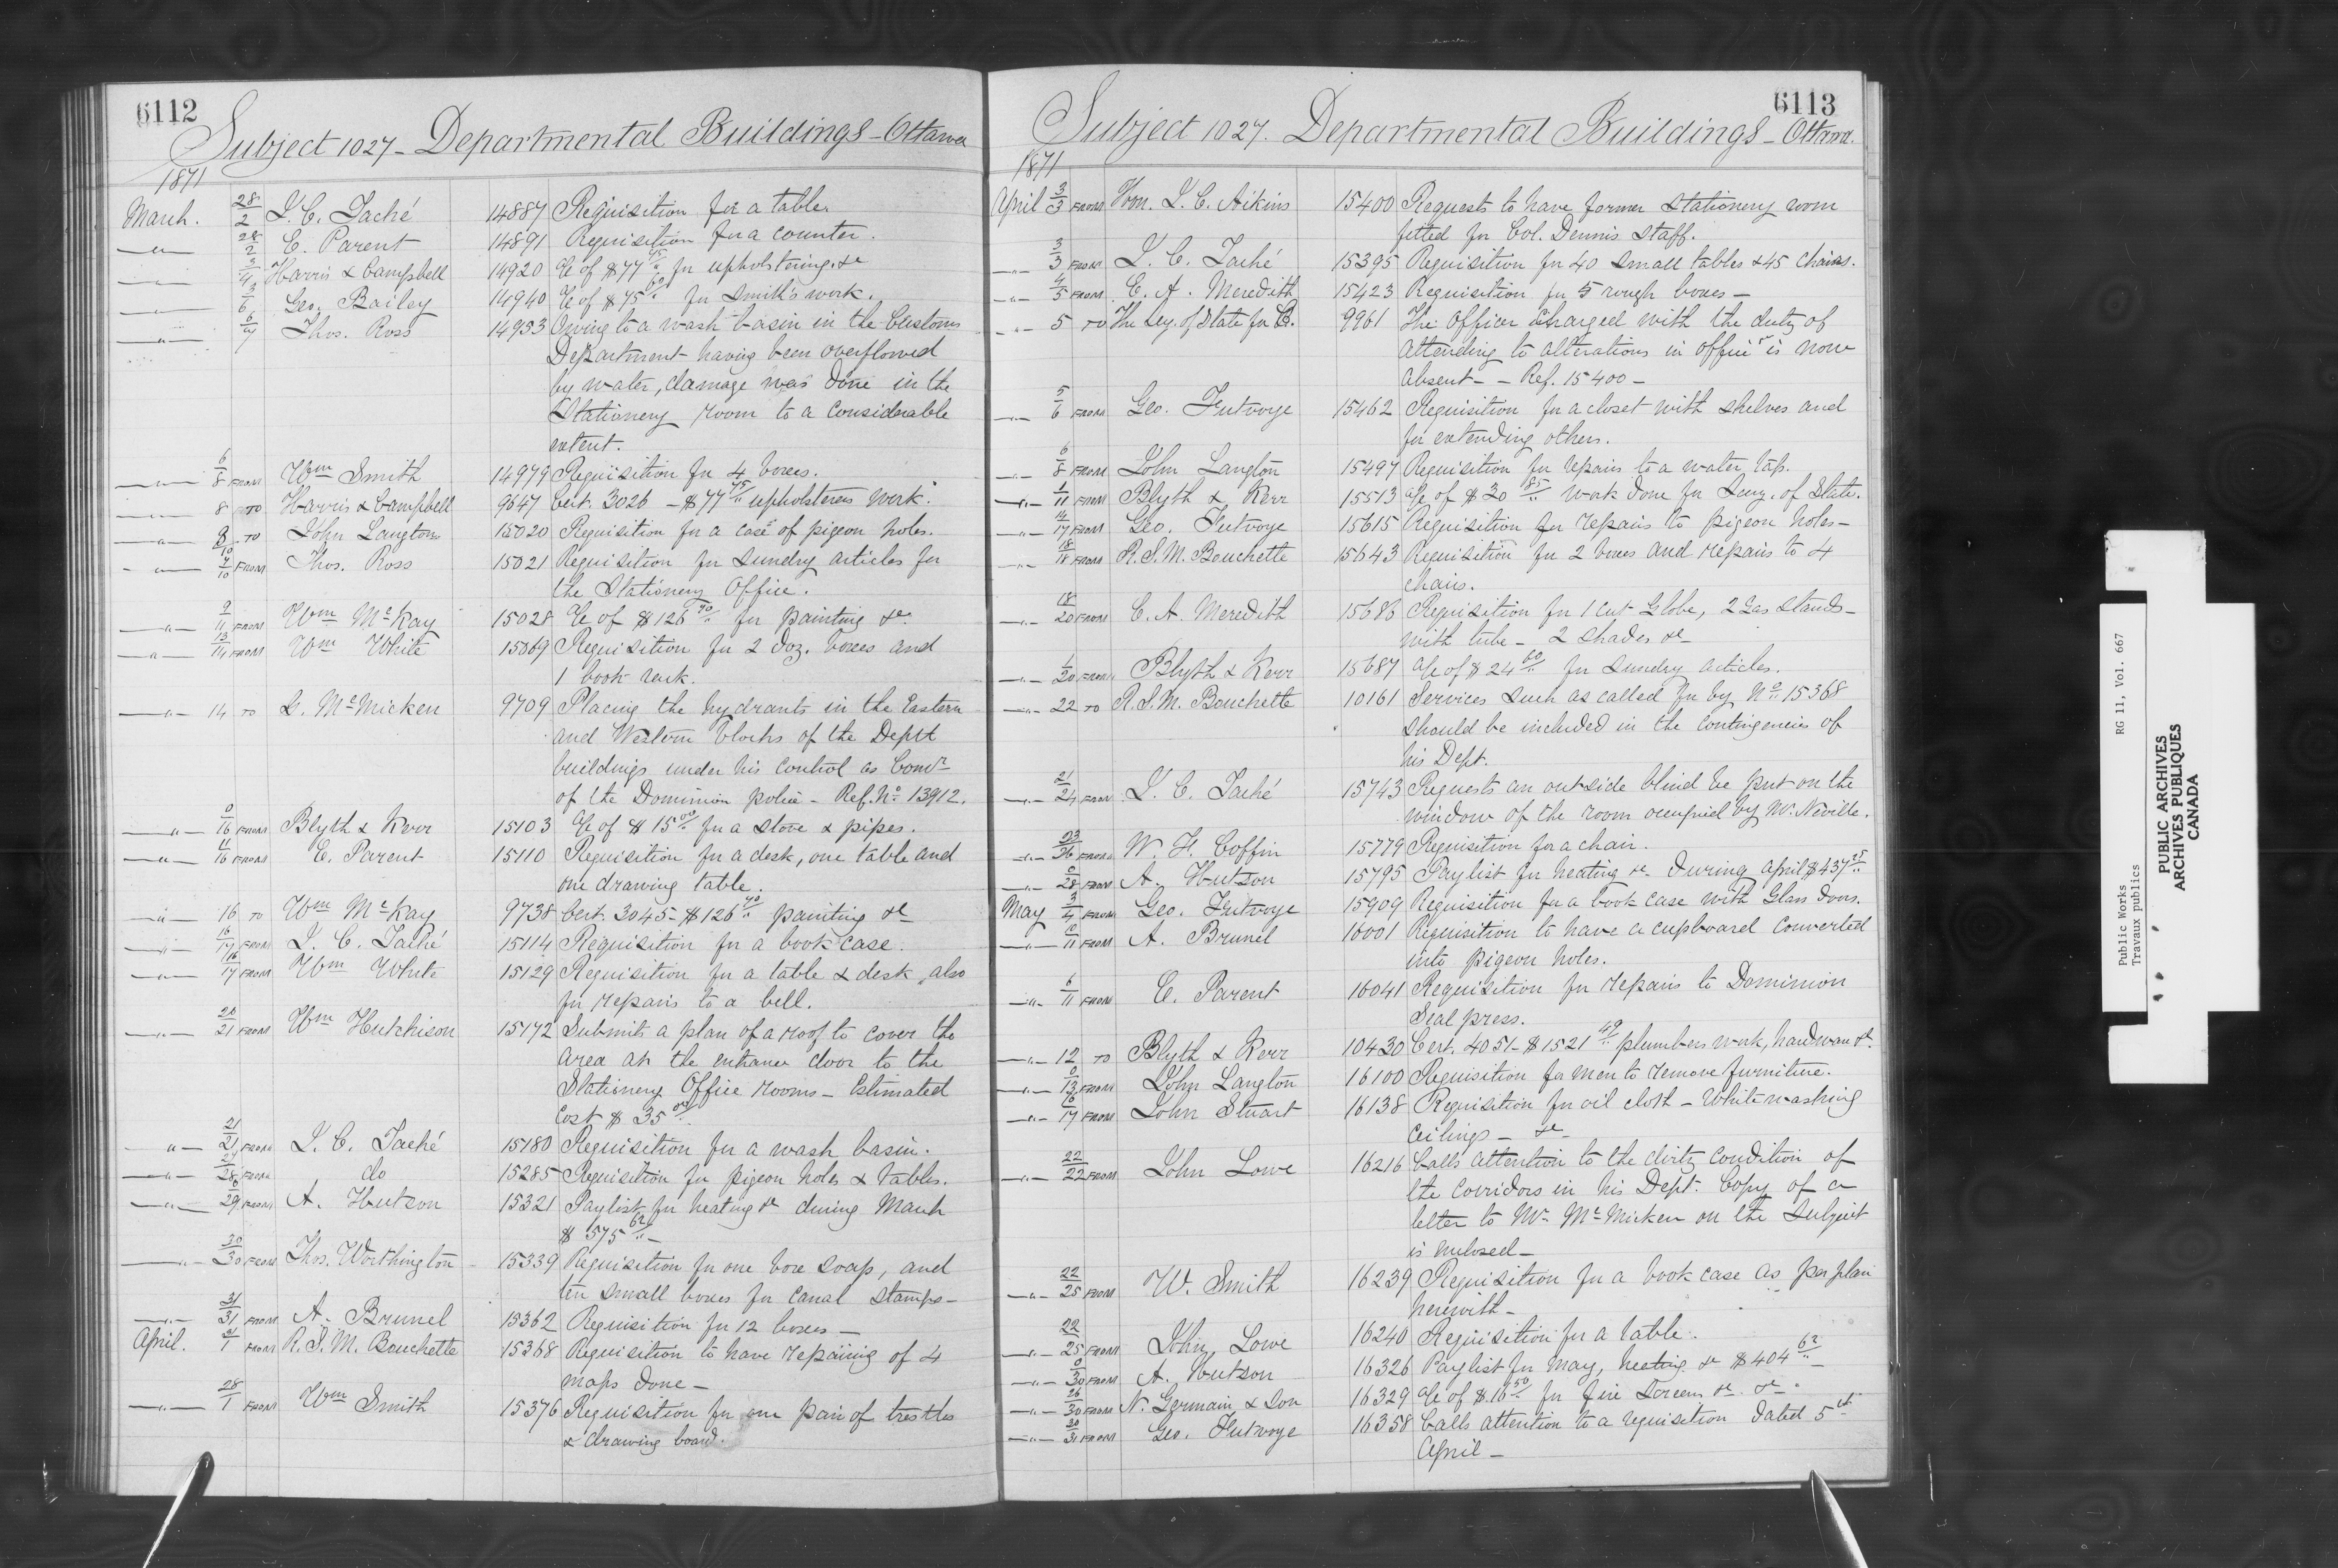 6112
Subject 1027 - Departmental Buildings - Ottawa
1871
March. 28/2 J. C. Taché 14887 Requisition for a table.
" 28/2 E. Parent 14891 Requisition for a counter.
" 3/4 Harris & Campbell 14920 a/c of $77 75/" for upholstering &c
" 3/6 Geo. Bailey 14940 a/c of $75 60/" for Smith's work.
" 6/7 Thos. Ross 14953 Owing to a wash basin in the Customs
Department having been overflowed
by water, damage was done in the
Stationery room to a considerable
extent.
" 6/8 FROM Wm Smith 14979 Requisition for 4 boxes.
" 8 TO Harris & Campbell 9647 Cert. 3026 - $77 75/" upholsterers work.
" 8/10 TO John Langton 15020 Requisition for a case of pigeon holes.
" 9/10 FROM Thos. Ross 15021 Requisition for Sundry articles for
the Stationery Office.
" 9/11 FROM Wm McKay 15028 a/c of $126 70/" for painting &c
" 13/14 FROM Wm White 15069 Requisition for 2 doz. boxes and
1 book rack.
" 14 TO G. McMicken 9709 Placing the hydrants in the Eastern
and Western blocks of the Deptt
buildings under his control as Comr
of the Dominion police - Ref. No 13912.
" 0/16 FROM Blyth & Kerr 15103 a/c of $15 00/" for a stove & pipes.
" 11/16 FROM E. Parent 15110 Requisition for a desk, one table and
one drawing table.
" 16 TO Wm McKay 9738 Cert. 3045 - $126 70/" painting &c
" 16/17 FROM J. C. Taché 15114 Requisition for a book case.
" 16/17 FROM Wm White 15129 Requisition for a table & desk, also
for repairs to a bell.
" 20/21 FROM Wm Hutchison 15172 Submits a plan of a roof to cover the
area at the entrance door to the
Stationery Office rooms - Estimated
Cost $35 00/"
" 21/21 FROM J. C. Taché 15180 Requisition for a wash basin.
" 27/28 FROM do 15285 Requisition for pigeon holes & tables.
" 0/29 FROM A. Hutson 15321 Paylist for heating &c during March
$575 62/" -
" 30/30 FROM Thos. Worthington 15339 Requisition for one box soap, and
ten small boxes for Canal stamps -
" 31/31 FROM A. Brunel 15362 Requisition for 12 boxes -
April. 31/1 FROM R. S. M. Bouchette 15368 Requisition to have repairing of 4
maps done -
" 28/1 FROM Wm Smith 15376 Requisition for one pair of trestles
& drawing board.
6113
Subject 1027. Departmental Buildings - Ottawa.
1871
April 3/3 FROM Hon. J. C. Aikins 15400 Requests to have former Stationery room
fitted for Col. Dennis staff.
" 3/3 FROM J. C. Taché 15395 Requisition for 40 small tables & 45 chairs.
" 4/5 FROM E. A. Meredith 15423 Requisition for 5 rough boxes -
" 5 TO The Secy. of State for C. 9961 The Officer charged with the duty of
attending to alterations in offices is now
absent - - Ref. 15400 -
" 5/6 FROM Geo. Futvoye 15462 Requisition for a closet with shelves and
for extending others.
" 6/8 FROM John Langton 15497 Requisition for repairs to a water tap.
" 1/11 FROM Blyth & Kerr 15513 a/c of $30 85/" work done for Secy. of State.
" 14/17 FROM Geo. Futvoye 15615 Requisition for repairs to pigeon holes -
" 18/18 FROM R. S. M. Bouchette 15643 Requisition for 2 boxes and repairs to 4
chairs.
" 18/20 FROM E. A. Meredith 15686 Requisition for 1 Cut Globe, 2 Gas stands -
with tube - 2 shades &c
" 1/20 FROM Blyth & Kerr 15687 a/c of $24 60/" for Sundry articles.
" 22 TO R. S. M. Bouchette 10161 Services such as called for by No 15368
should be included in the contingencies of
his Dept.
" 21/24 FROM J. C. Taché 15743 Requests an outside blind be put on the
window of the room occupied by Mr. Neville.
" 23/26 FROM W. F. Coffin 15779 Requisition for a chair.
" 0/28 FROM A. Hutson 15795 Paylist for heating &c during April $437 25/"
May 3/4 FROM Geo. Futvoye 15909 Requisition for a book case with Glass doors.
" 10/11 FROM A. Brunel 16001 Requisition to have a cupboard converted
into pigeon holes.
" 6/11 FROM E. Parent 16041 Requisition for repairs to Dominion
Seal press.
" 12 TO Blyth & Kerr 10430 Cert. 4051 - $1521 49/" plumbers work, hardware &c
" 0/13 FROM John Langton 16100 Requisition for men to remove furniture.
" 16/17 FROM John Stuart 16138 Requisition for oil cloth - Whitewashing
Ceilings - &c -
" 22/22 FROM John Lowe 16216 Calls attention to the dirty condition of
the corridors in his Dept. Copy of a
letter to Mr McMicken on the subject
is enclosed -
" 22/25 FROM W. Smith 16239 Requisition for a book case as per plan
herewith -
" 22/25 FROM John Lowe 16240 Requisition for a table.
" 0/30 FROM A. Hutson 16326 Paylist for May, heating &c $404 62/" -
" 26/30 FROM N. Germain & Son 16329 a/c of $16 50/" for fire screens &c &c -
" 30/31 FROM Geo. Futvoye 16358 Calls attention to a requisition dated 5th
April -
Public Works
Travaux publics
RG 11, Vol. 667
PUBLIC ARCHIVES
ARCHIVES PUBLIQUES
CANADA